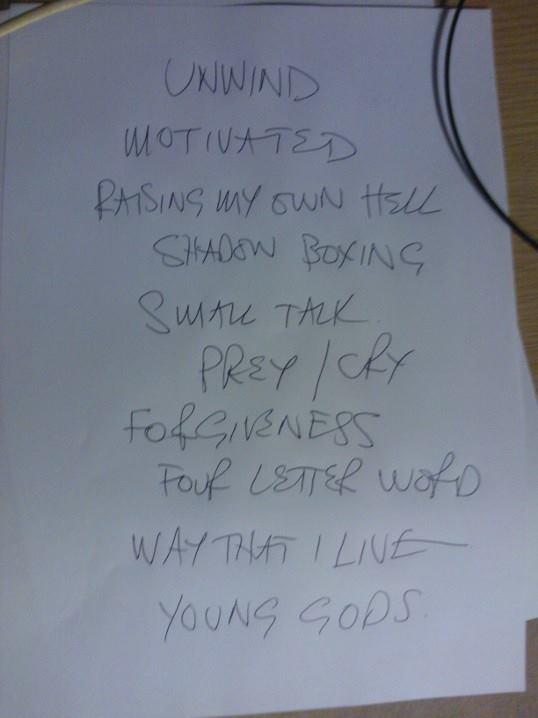 UNWIND
MOTIVATED
RAISING MY OWN HELL
SHADOW BOXING
SMALL TALK.
PREY / CRY
FORGIVENESS
FOUR LETTER WORD
WAY THAT I LIVE
YOUNG GODS.